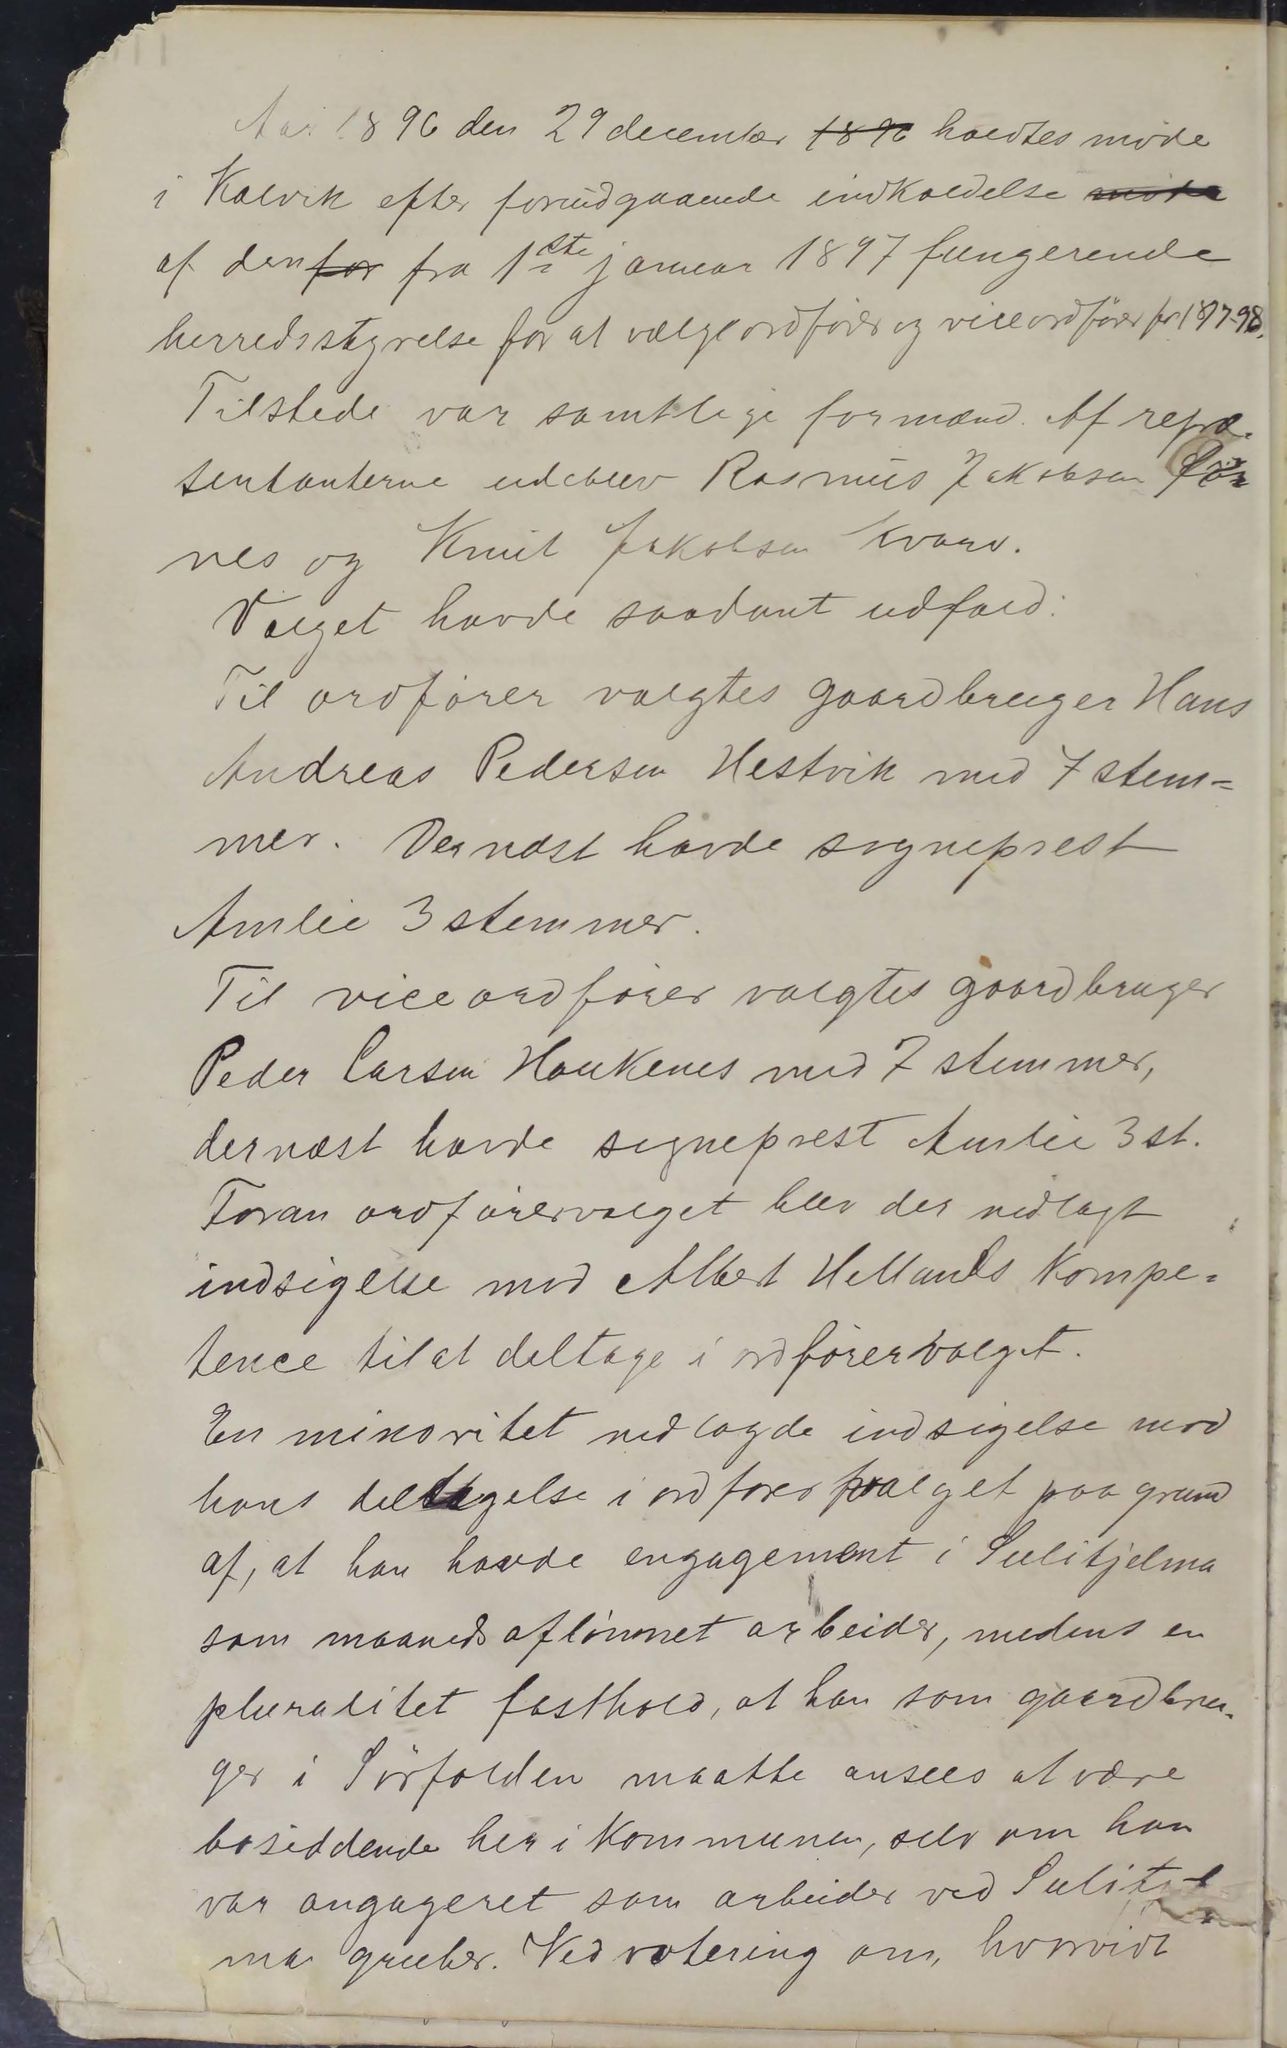 Aar 1896 den 29 december 1896 holdtes møde
i Kalvik efter forudgaaende indkaldelse møde
af den for fra 1ste januar 1897 fungerende
herredsstyrelse for at vælge ordfører og viceordfører for 1897-98.
Tilstede var samtlige formænd. Af repræ-
sentanterne udeblev Rasmus Jakobsen
nes og Knut Jakobsen Kvarv.
Valget havde saadant udfald:
Til ordfører valgtes gaardbruger Hans
Andreas Pedersen Hestvik med 7 stem=
mer. Dernæst havde sogneprest
Amlie 3 stemmer.
Til viceordfører valgtes gaardbruger
Peder Larsen Haukenes med 7 stemmer,
dernæst havde sogneprest Amlie 3 st.
Foran ordførervalget blev der nedlagt
indsigelse mod Albert Hellands Kompe=
tence til at deltage i ordførervalget.
En minoritet nedlagde indsigelse mod
hans deltagelse i ordførervalget paa grund
af, at han havde engagement i Sulitjelma
som maanedsaflønnet arbeider, medens en
pluralitet fasthold, at han som gaardbru-
ger i Sørfolden maatte ansees at være
bosiddende her i Kommunen, selv om han
var angageret som arbeider ved Sulitjel
ma gruber. Ved votering om, hvorvidt